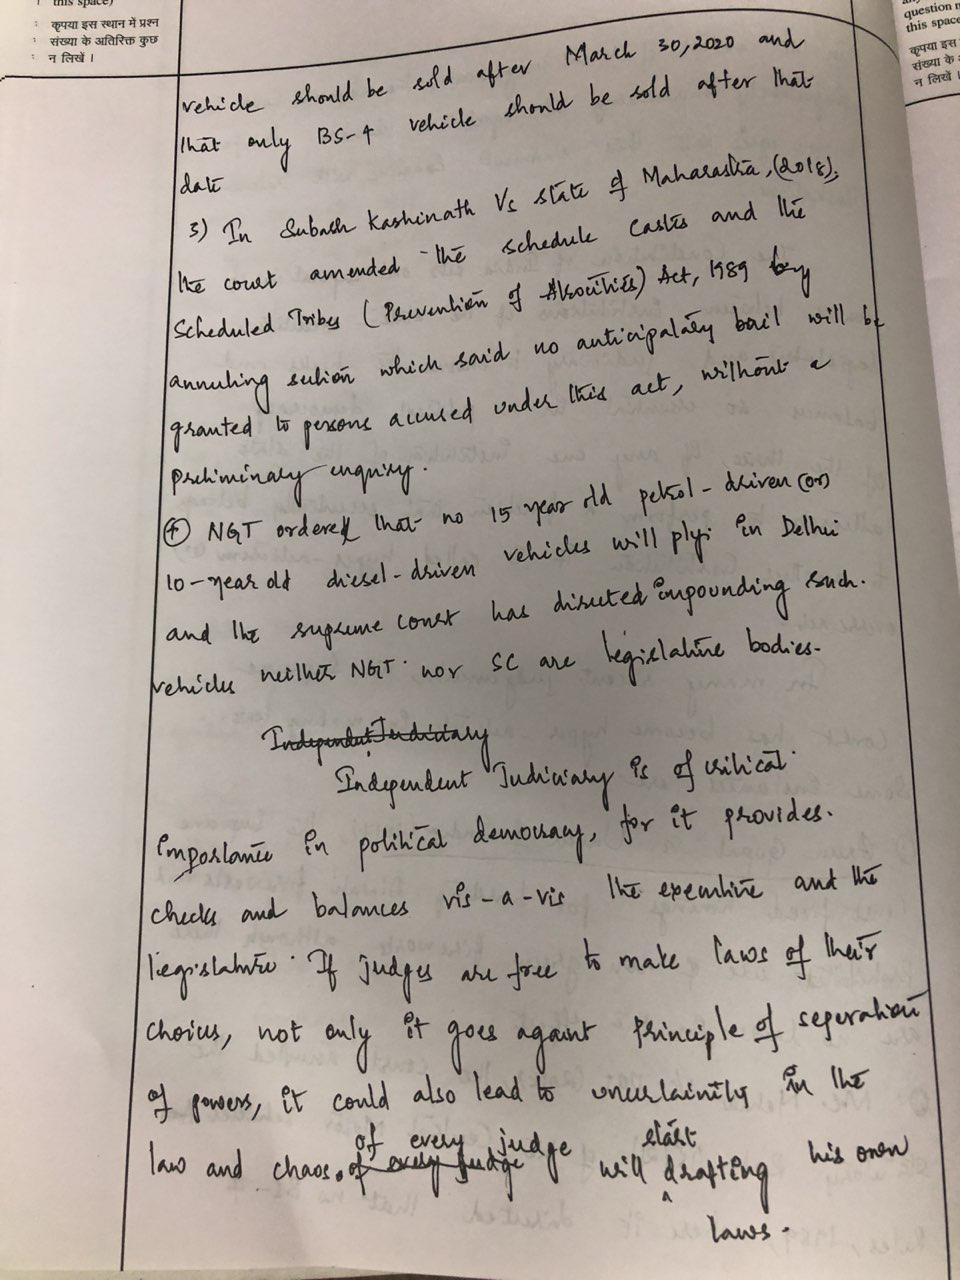 this space)
कृपया इस स्थान में प्रश्न
संख्या के अतिरिक्त कुछ
न लिखें ।
question n
this space
कृपया इस
संख्या के
न लिखें ।
vehicle should be sold after March 30, 2020 and
that only BS-4 vehicle should be sold after that
date
3) In Subash Kashinath Vs state of Maharastra, (2018),
the court amended the schedule Castes and the
Scheduled Tribes (Prevention of Atrocities) Act, 1989 by
annuling section which said no anticipatary bail will be
granted to persons accused under this act, without a
preliminary enquiry.
④ NGT ordered that no 15 year old petrol-driven (or)
10-year old diesel-driven vehicles will plyi in Delhi
and the supreme court has directed impounding such.
vehicles neither NGT nor SC are legislative bodies.
Independent Judiciary
Independent Judiciary is of critical
importance in political democracy, for it provides.
checks and balances vis-a-vis the executive and the
legislature. If judges are free to make laws of their
choices, not only it goes against principle of seperation
of powers, it could also lead to uncertainity in the
law and chaos. of every judge of every judge will start drafting his own
laws.